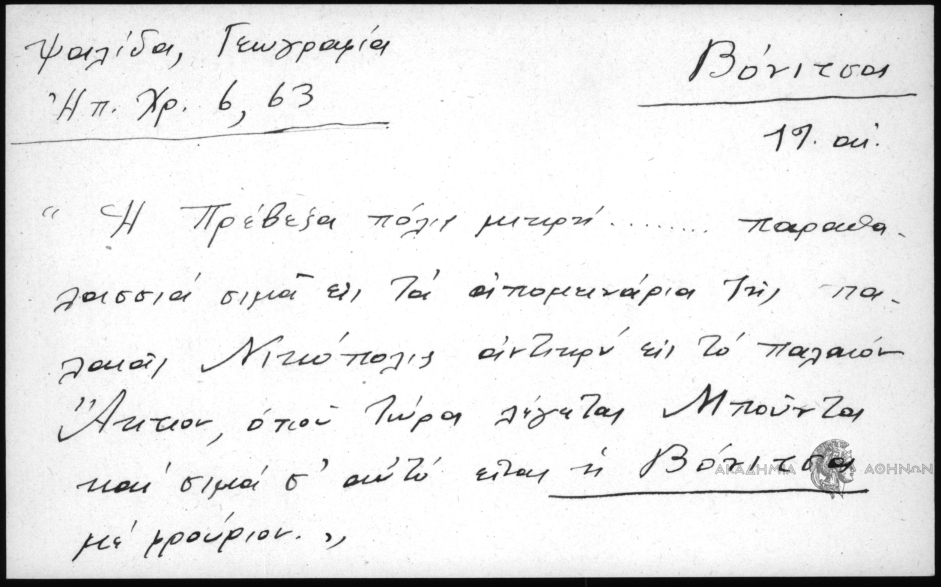 Ψαλίδα, Γεωγραφία
Ἠπ. Χρ. 6, 63
Βόνιτσα
19. αἰ.
“ Ἡ Πρέβεζα πόλις μικρή ........ παραθα-
λασσιά σιμά εἰς τά ἀπομεινάρια τῆς πα-
λαιᾶς Νικόπολις ἀντικρύ εἰς τό παλαιόν
Ἄκτιον, ὁποῦ τώρα λέγεται Μπούντα
καί σιμά σ' αὐτό εἶται ἡ Βόνιτσα
μέ φρούριον. „
ΑΚΑΔΗΜΙΑ ΑΘΗΝΩΝ